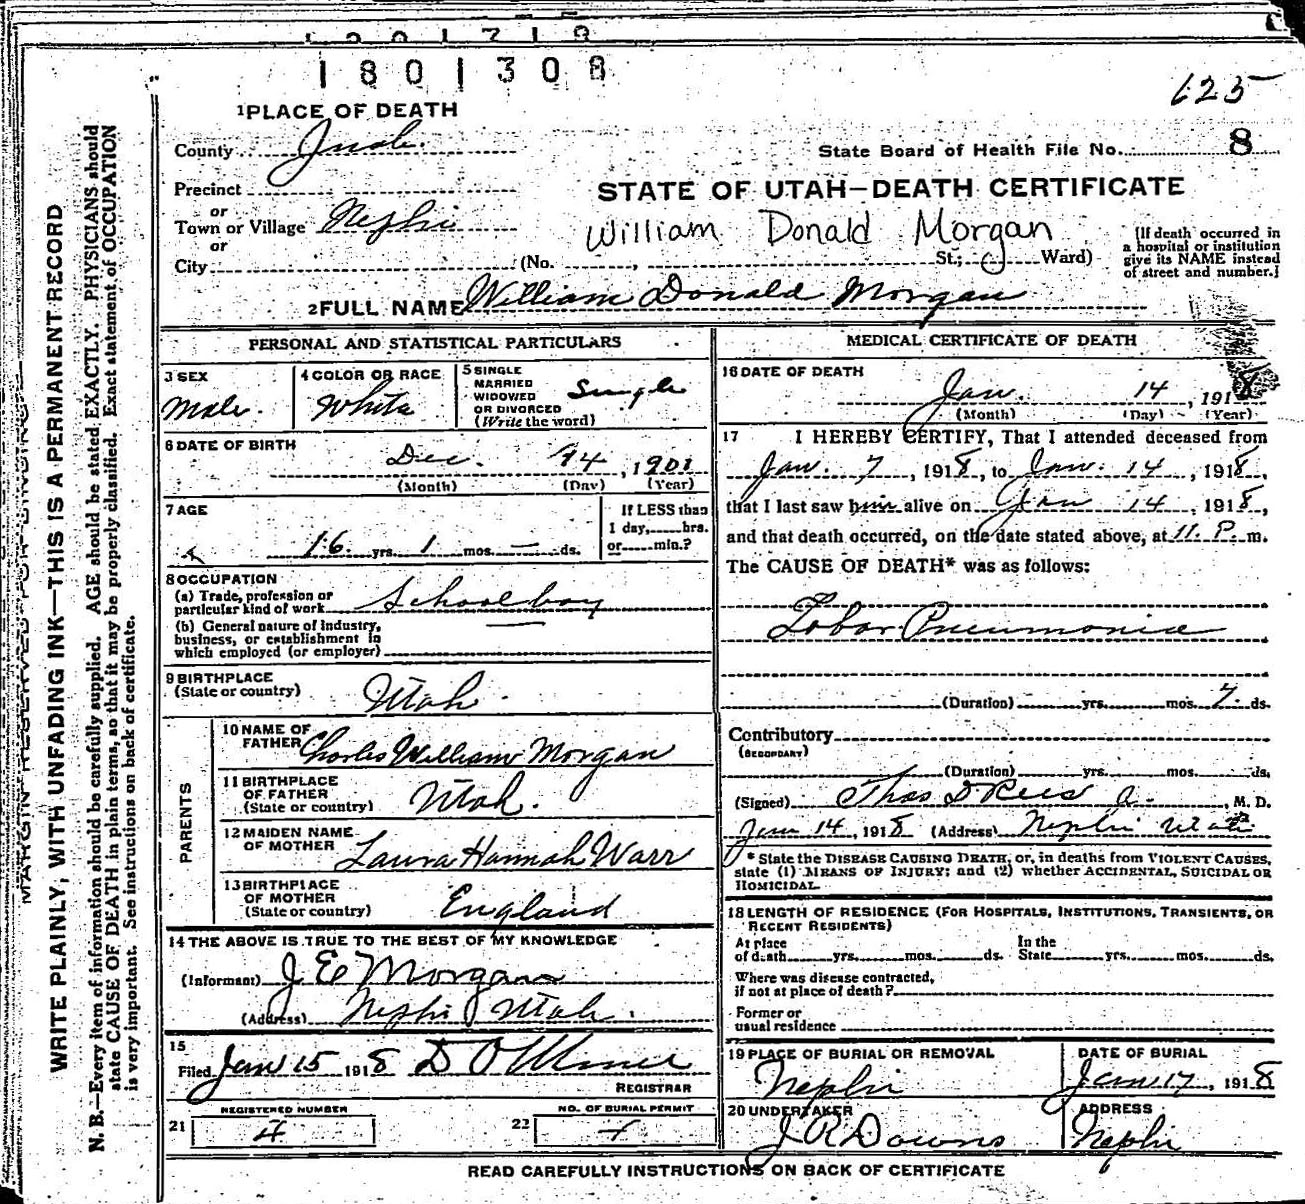 1801308
625
1 PLACE OF DEATH
County Juab.
State Board of Health File No. 8
Precinct
or
STATE OF UTAH—DEATH CERTIFICATE
Town or Village Nephi
or
William Donald Morgan
City (No. , St.; Ward)
[If death occurred in
a hospital or institution
give its NAME instead
of street and number.]
2 FULL NAME William Donald Morgan
PERSONAL AND STATISTICAL PARTICULARS
3 SEX
Male.
4 COLOR OR RACE
White
5 SINGLE
MARRIED
WIDOWED
OR DIVORCED
(Write the word)
Single
6 DATE OF BIRTH
Dec. 14, 1901
(Month) (Day) (Year)
7 AGE
16 yrs. 1 mos. — ds.
If LESS than
1 day, hrs.
or min.?
8 OCCUPATION
(a) Trade, profession or
particular kind of work Schoolboy
(b) General nature of Industry,
business, or establishment in
which employed (or employer)
9 BIRTHPLACE
(State or country) Utah.
PARENTS
10 NAME OF
FATHER Charles William Morgan
11 BIRTHPLACE
OF FATHER
(State or country) Utah.
12 MAIDEN NAME
OF MOTHER Laura Hannah Warr
13 BIRTHPLACE
OF MOTHER
(State or country) England
14 THE ABOVE IS TRUE TO THE BEST OF MY KNOWLEDGE
(Informant) J E Morgan
(Address) Nephi Utah.
15
Filed Jan 15 1918
REGISTRAR
REGISTERED NUMBER
21 4
NO. OF BURIAL PERMIT
22
MEDICAL CERTIFICATE OF DEATH
16 DATE OF DEATH
Jan. 14, 1918
(Month) (Day) (Year)
17 I HEREBY CERTIFY, That I attended deceased from
Jan. 7, 1918, to Jan. 14, 1918,
that I last saw him alive on Jan 14, 1918,
and that death occurred, on the date stated above, at 11. P. m.
The CAUSE OF DEATH* was as follows:
Lobar Pneumonia
(Duration) yrs. mos. 7. ds.
Contributory
(SECONDARY)
(Duration) yrs. mos. ds.
(Signed) Thos D Rees , M. D.
Jan 14, 1918 (Address) Nephi Utah
* State the DISEASE CAUSING DEATH, or, in deaths from VIOLENT CAUSES,
state (1) MEANS OF INJURY; and (2) whether ACCIDENTAL, SUICIDAL OR
HOMICIDAL.
18 LENGTH OF RESIDENCE (FOR HOSPITALS, INSTITUTIONS, TRANSIENTS, OR
RECENT RESIDENTS)
At place
of death yrs. mos. ds.
In the
State yrs. mos. ds.
Where was disease contracted,
if not at place of death?
Former or
usual residence
19 PLACE OF BURIAL OR REMOVAL
Nephi
DATE OF BURIAL
Jan 17, 1918
20 UNDERTAKER
J R Downs
ADDRESS
Nephi
READ CAREFULLY INSTRUCTIONS ON BACK OF CERTIFICATE
MARGIN RESERVED FOR BINDING
WRITE PLAINLY, WITH UNFADING INK—THIS IS A PERMANENT RECORD
N. B.—Every item of information should be carefully supplied. AGE should be stated EXACTLY. PHYSICIANS should
state CAUSE OF DEATH in plain terms, so that it may be properly classified. Exact statement of OCCUPATION
is very important. See instructions on back of certificate.